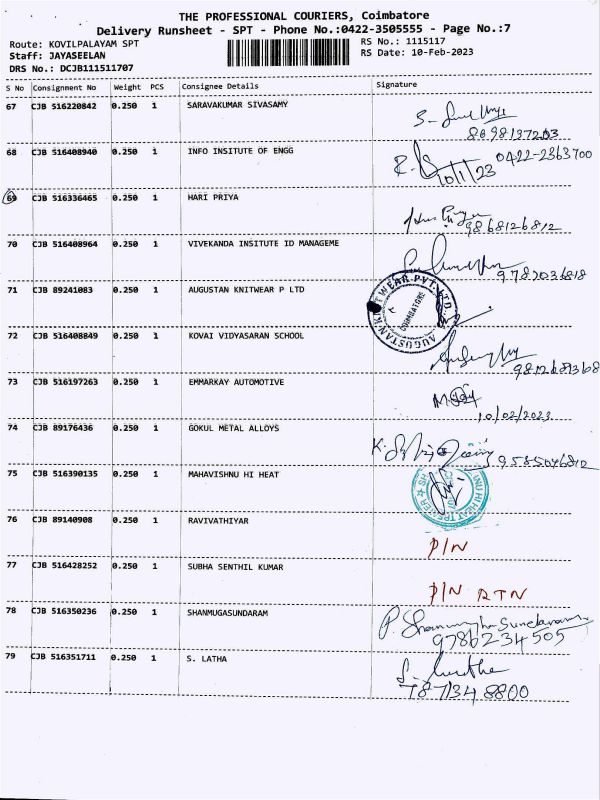 THE PROFESSIONAL COURIERS, Coimbatore
Delivery Runsheet - SPT - Phone No.:0422-3505555 - Page No.:7
Route: KOVILPALAYAM SPT RS No.: 1115117
Staff: JAYASEELAN RS Date: 10-Feb-2023
DRS No.: DCJB111511707
S No Consignment No Weight PCS Consignee Details Signature
67 CJB 516220842 0.250 1 SARAVAKUMAR SIVASAMY
8698137203
68 CJB 516408940 0.250 1 INFO INSITUTE OF ENGG 0422-2363700
10/1/23
69 CJB 516336465 0.250 1 HARI PRIYA
9868126812
70 CJB 516408964 0.250 1 VIVEKANDA INSITUTE ID MANAGEME
9787036818
71 CJB 89241083 0.250 1 AUGUSTAN KNITWEAR P LTD
AUGUSTAN KNITWEAR PVT. LTD.
COIMBATORE
72 CJB 516408849 0.250 1 KOVAI VIDYASARAN SCHOOL
9812681368
73 CJB 516197263 0.250 1 EMMARKAY AUTOMOTIVE
10/02/2023
74 CJB 89176436 0.250 1 GOKUL METAL ALLOYS
9585046812
75 CJB 516390135 0.250 1 MAHAVISHNU HI HEAT
76 CJB 89140908 0.250 1 RAVIVATHIYAR
P/N
77 CJB 516428252 0.250 1 SUBHA SENTHIL KUMAR
P/N RTN
78 CJB 516350236 0.250 1 SHANMUGASUNDARAM
P. Shanmugha Sundaram
9786234505
79 CJB 516351711 0.250 1 S. LATHA
S. Latha
787134 8800